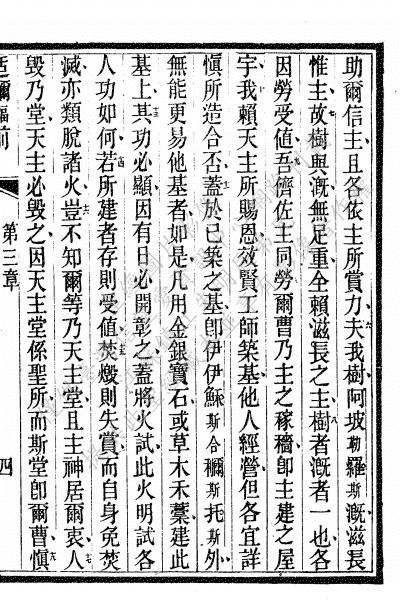 助爾信主且各依主所賞力夫我樹阿坡勒羅斯漑滋長
惟主故樹與漑無足重全賴滋長之主樹者漑者一也各
因勞受値吾儕佐主同勞爾曹乃主之稼穡卽主建之屋
宇我賴天主所賜恩效賢工師築基他人經營但各宜詳
愼所造合否蓋於已築之基卽伊伊穌斯合禰斯托斯外
無能更易他基者如是凡用金銀寶石或草木禾藁建此
基上其功必顯因有日必開彰之蓋將火試此火明試各
人功如何若所建者存則受値焚燬則失賞而自身免焚
滅亦類脫諸火豈不知爾等乃天主堂且主神居爾衷人
毀乃堂天主必毀之因天主堂係聖所而斯堂卽爾曹愼
前
第三章
四